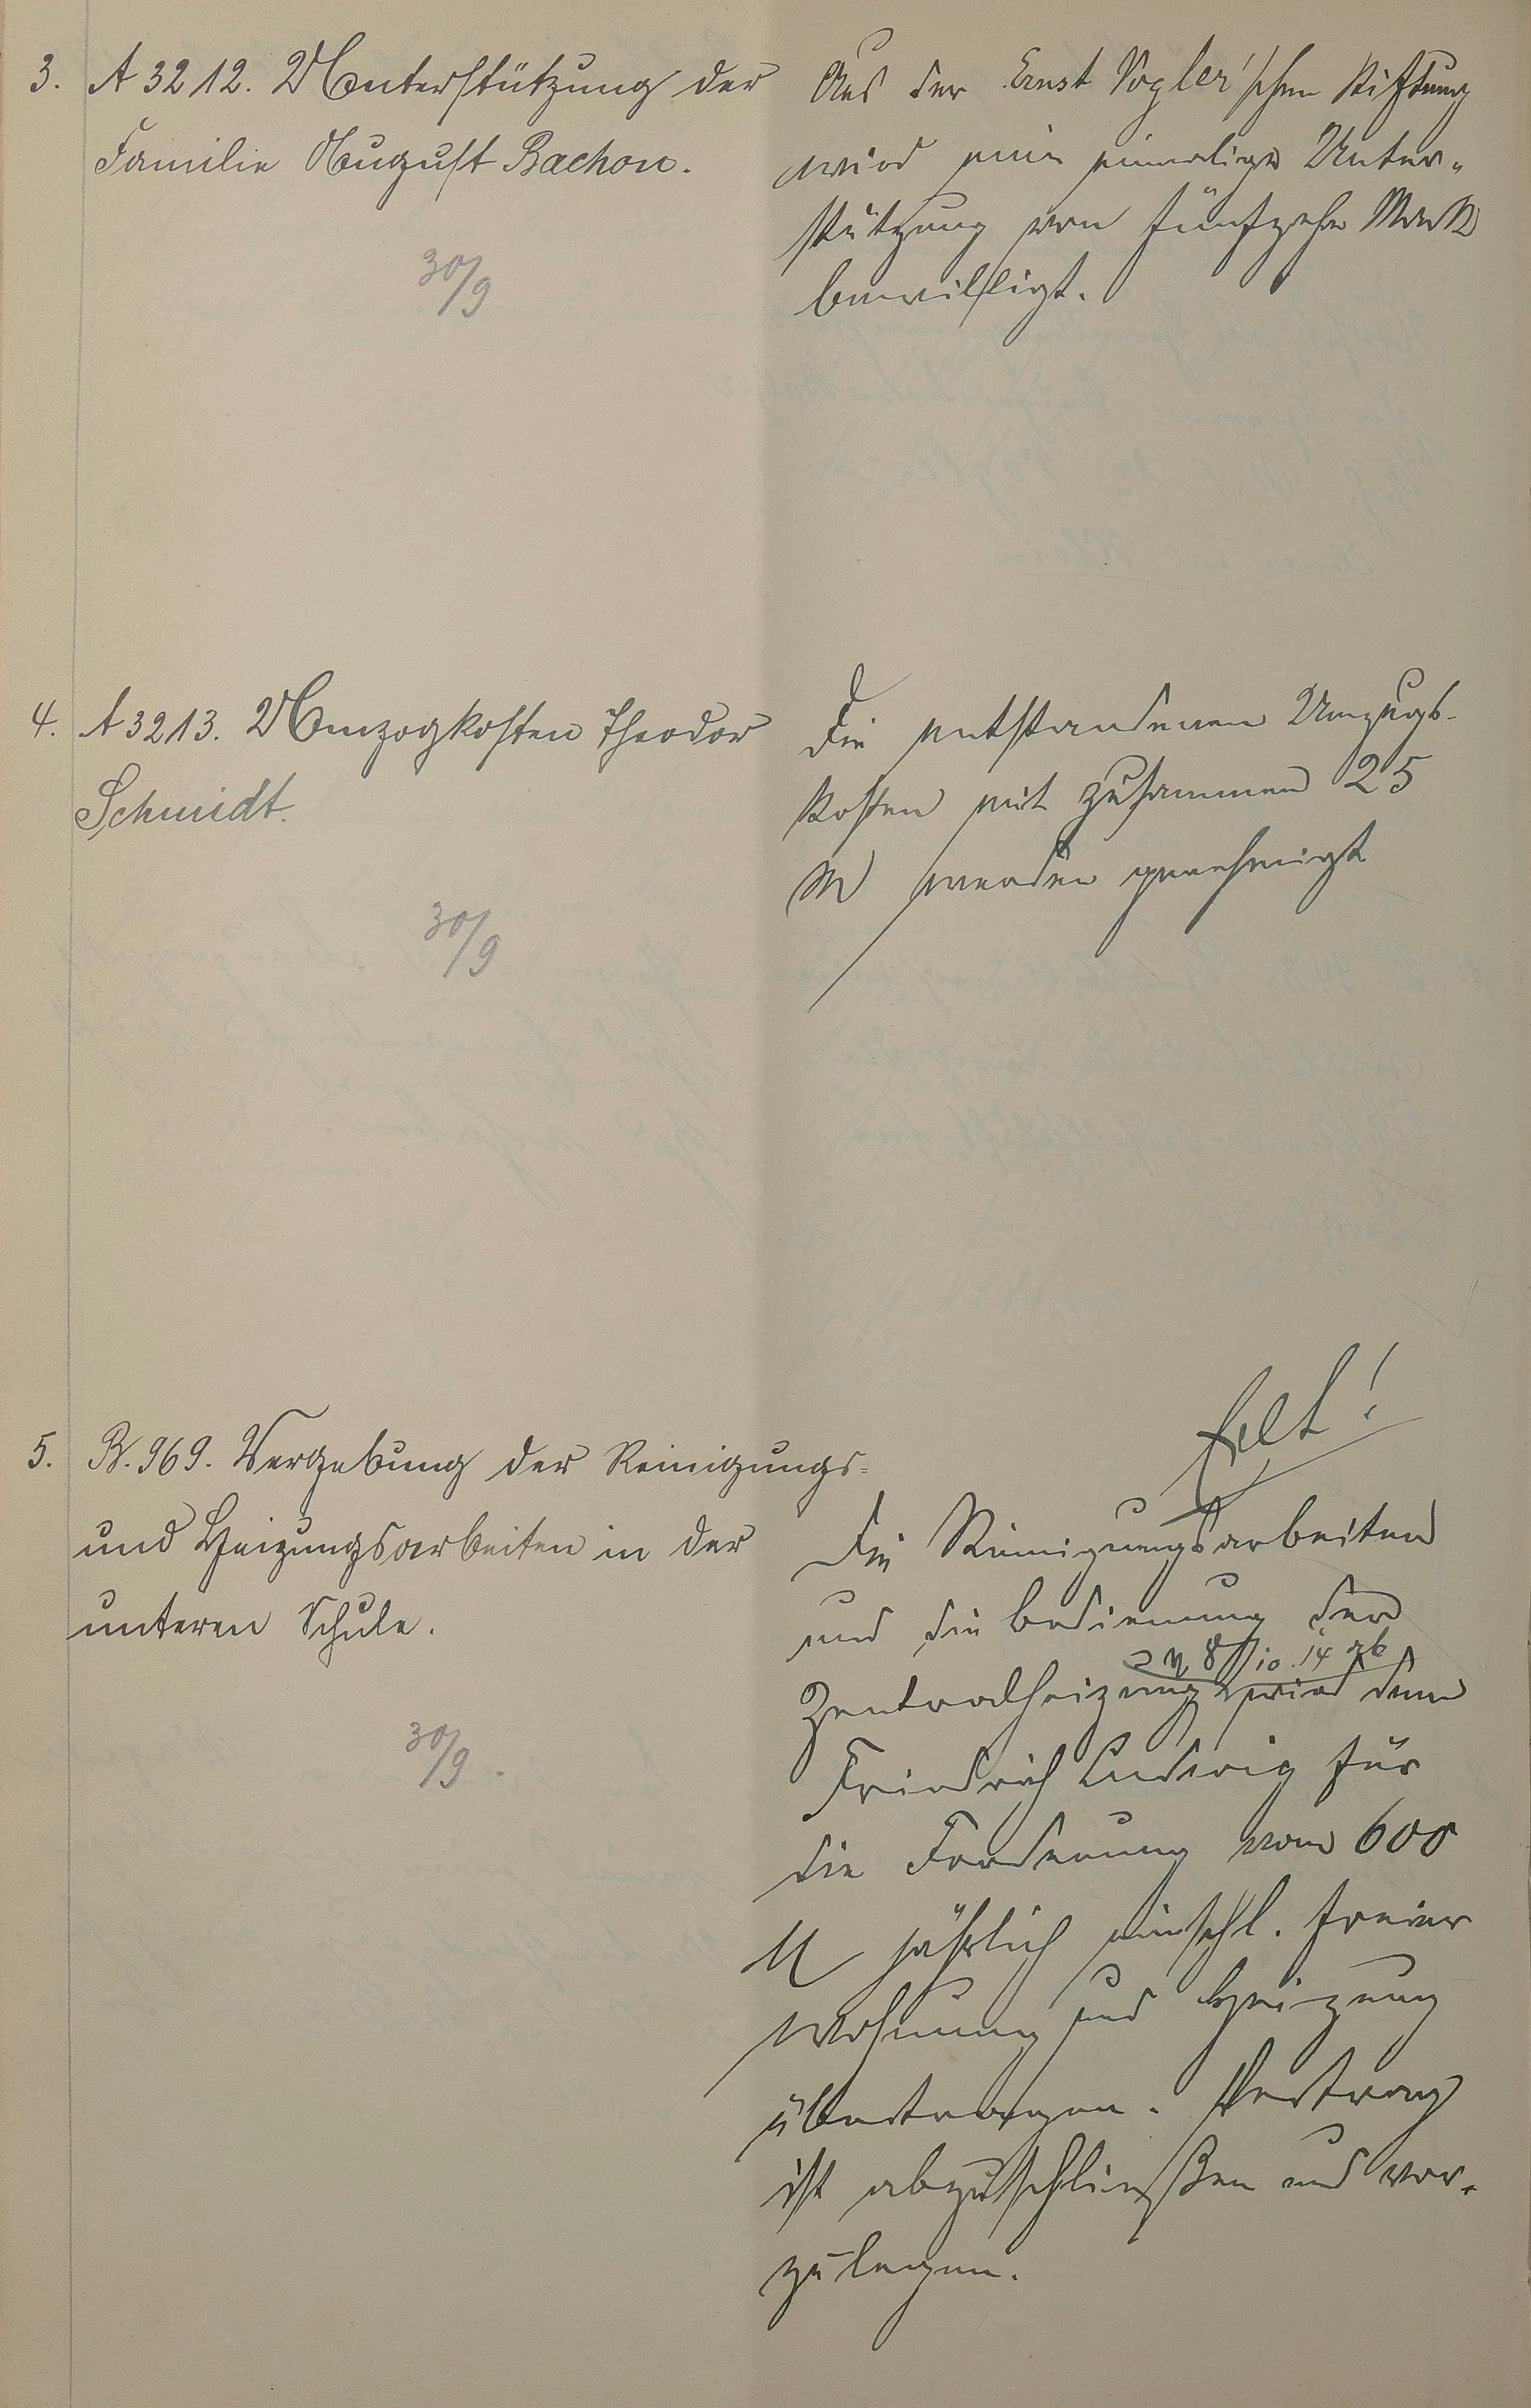 3. A 3212. Unterstützung der
Familie August Bachon.
30/9
Aus der Ernst Vogler'schen Stiftung
wird eine einmalige Unter-
stützung von fünfzehn Mark
bewilligt.
4. A 3213. Umzogkosten Theodor
Schmidt.
30/9
Die entstandenen Umzugs-
kosten mit zusammen 25
M werden genehmigt
5. B. 969. Vergebung der Reinigungs-
und Heizungsarbeiten in der
unteren Schule.
30/9
Die Reinigungsarbeiten
und die Bedienung der
Zentralheizung wird dem
10. 14 ab
Friedrich Ludwig für
die Forderung von 600
M jährlich einschl. freier
Wohnung und Heizung
übertragen. Vertrag
ist abzuschließen und vor-
zulegen.